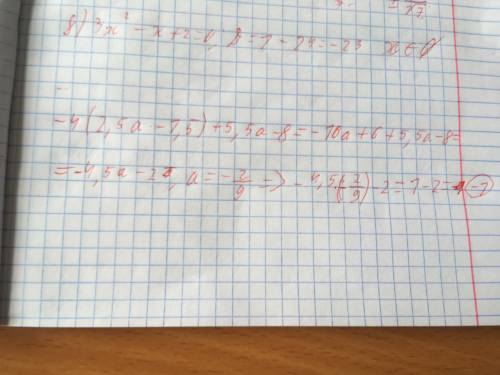 8) 3x² - x + 2 = 0, D = 1 - 24 = -23 x ∈ ∅
-4(2,5a - 1,5) + 5,5a - 8 = -10a + 6 + 5,5a - 8 =
= -4,5a - 2, a = -2/9 => -4,5·(-2/9) - 2 = 1 - 2 = -1